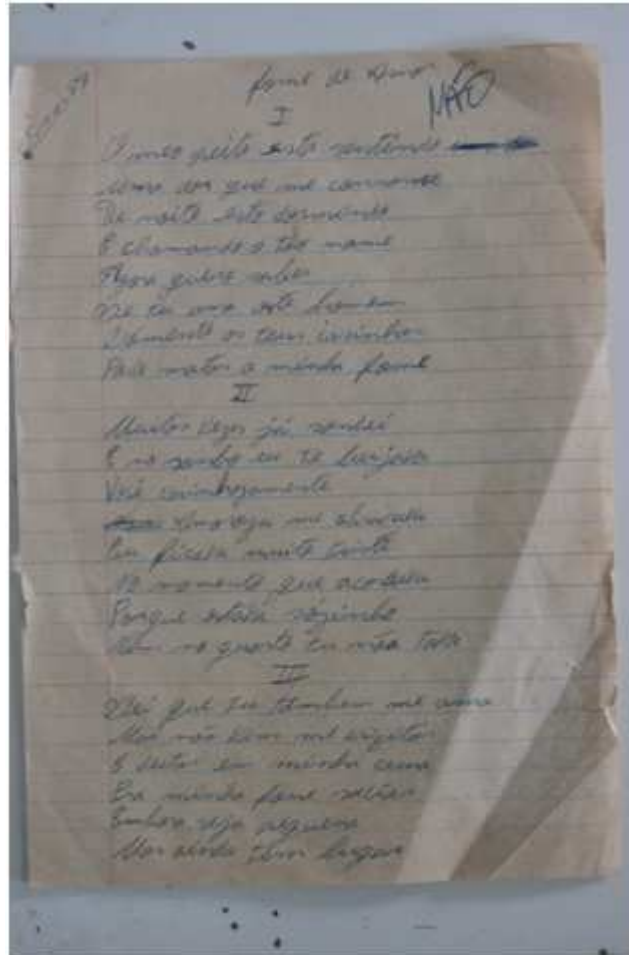 fome de Amor
NÃO
I
O meo peito esta sentindo
Uma dor que me consome
De noite esto dormindo
E chamando o teo nome
Agora quero saber
Se tu ama este homem
Somente os teus carinhos
Para matar a minha fome
II
Muitas vezes já sonhei
E no sonho eu te beijava
Você carinhozamente
me abraçava
Eu ficava muito triste
No momento que acordava
Porque estava sozinho
no quarto tu não tava
III
Sei que tu tambem me ama
Mas não vem me vizitar
E deitar em minha cama
Pra minha fome saciar
Embora seja pequena
Mas ainda tem lugar